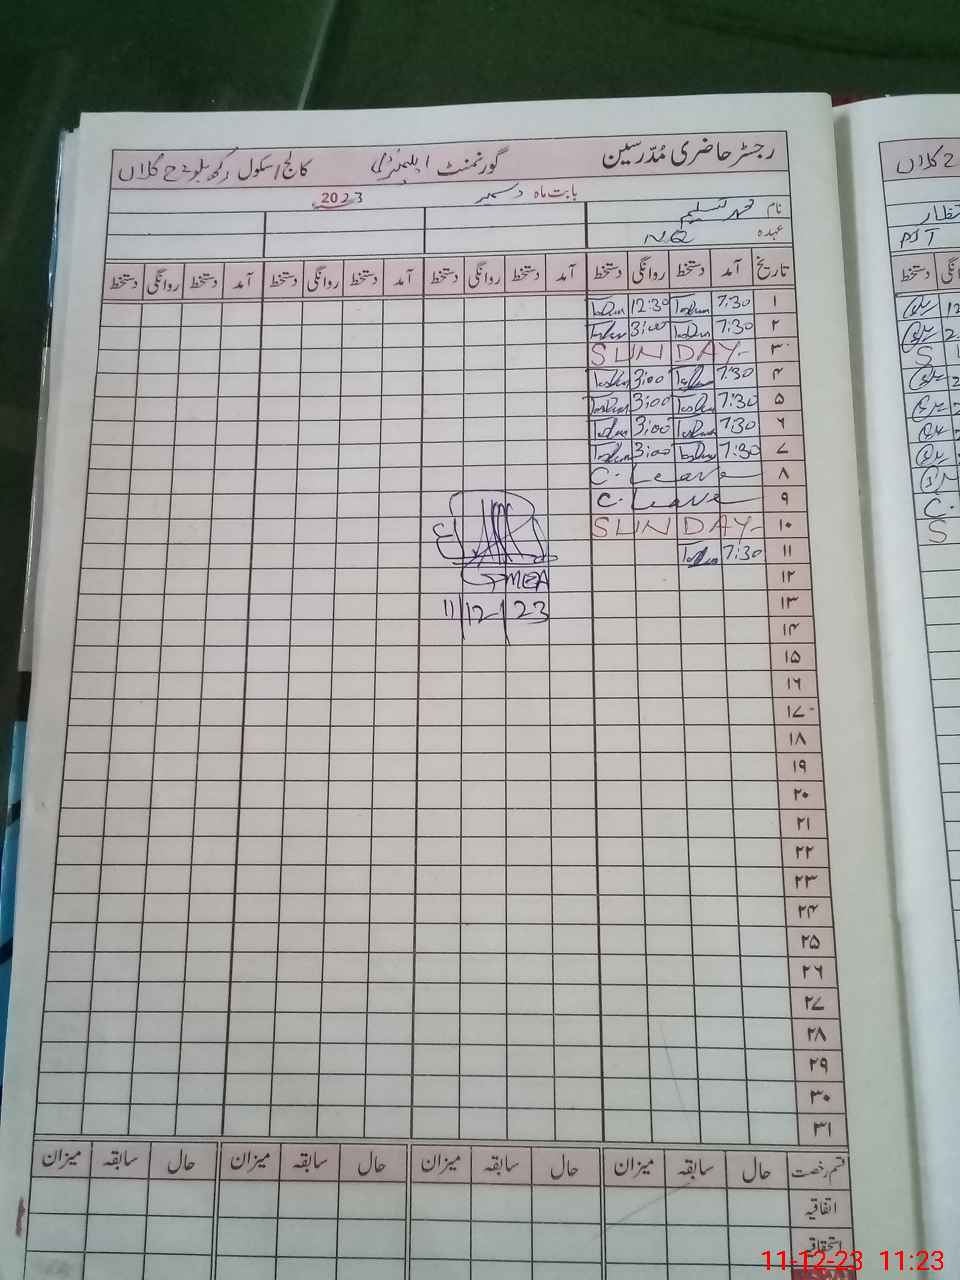 رجسٹر حاضری مُدّرسین گورنمنٹ ایلیمنٹری کالج/سکول رکھ بلوچ کلاں
بابت ماہ دسمبر 2023
نام محمد تسلیم
عہدہ N.Q
تاریخ آمد دستخط روانگی دستخط آمد دستخط روانگی دستخط آمد دستخط روانگی دستخط آمد دستخط روانگی دستخط
۱ 7:30 12:30
۲ 7:30 3:00
۳ SUNDAY
۴ 7:30 3:00
۵ 7:30 3:00
۶ 7:30 3:00
۷ 7:30 3:00
۸ C. Leave
۹ C. Leave
۱۰ SUNDAY
۱۱ 7:30
۱۲ MEA
۱۳ 11/12/23
۱۴
۱۵
۱۶
۱۷
۱۸
۱۹
۲۰
۲۱
۲۲
۲۳
۲۴
۲۵
۲۶
۲۷
۲۸
۲۹
۳۰
۳۱
قسم رخصت حال سابقہ میزان حال سابقہ میزان حال سابقہ میزان حال سابقہ میزان
اتفاقیہ
استحقاقیہ
کلاں
PST
دستخط
11-12-23 11:23